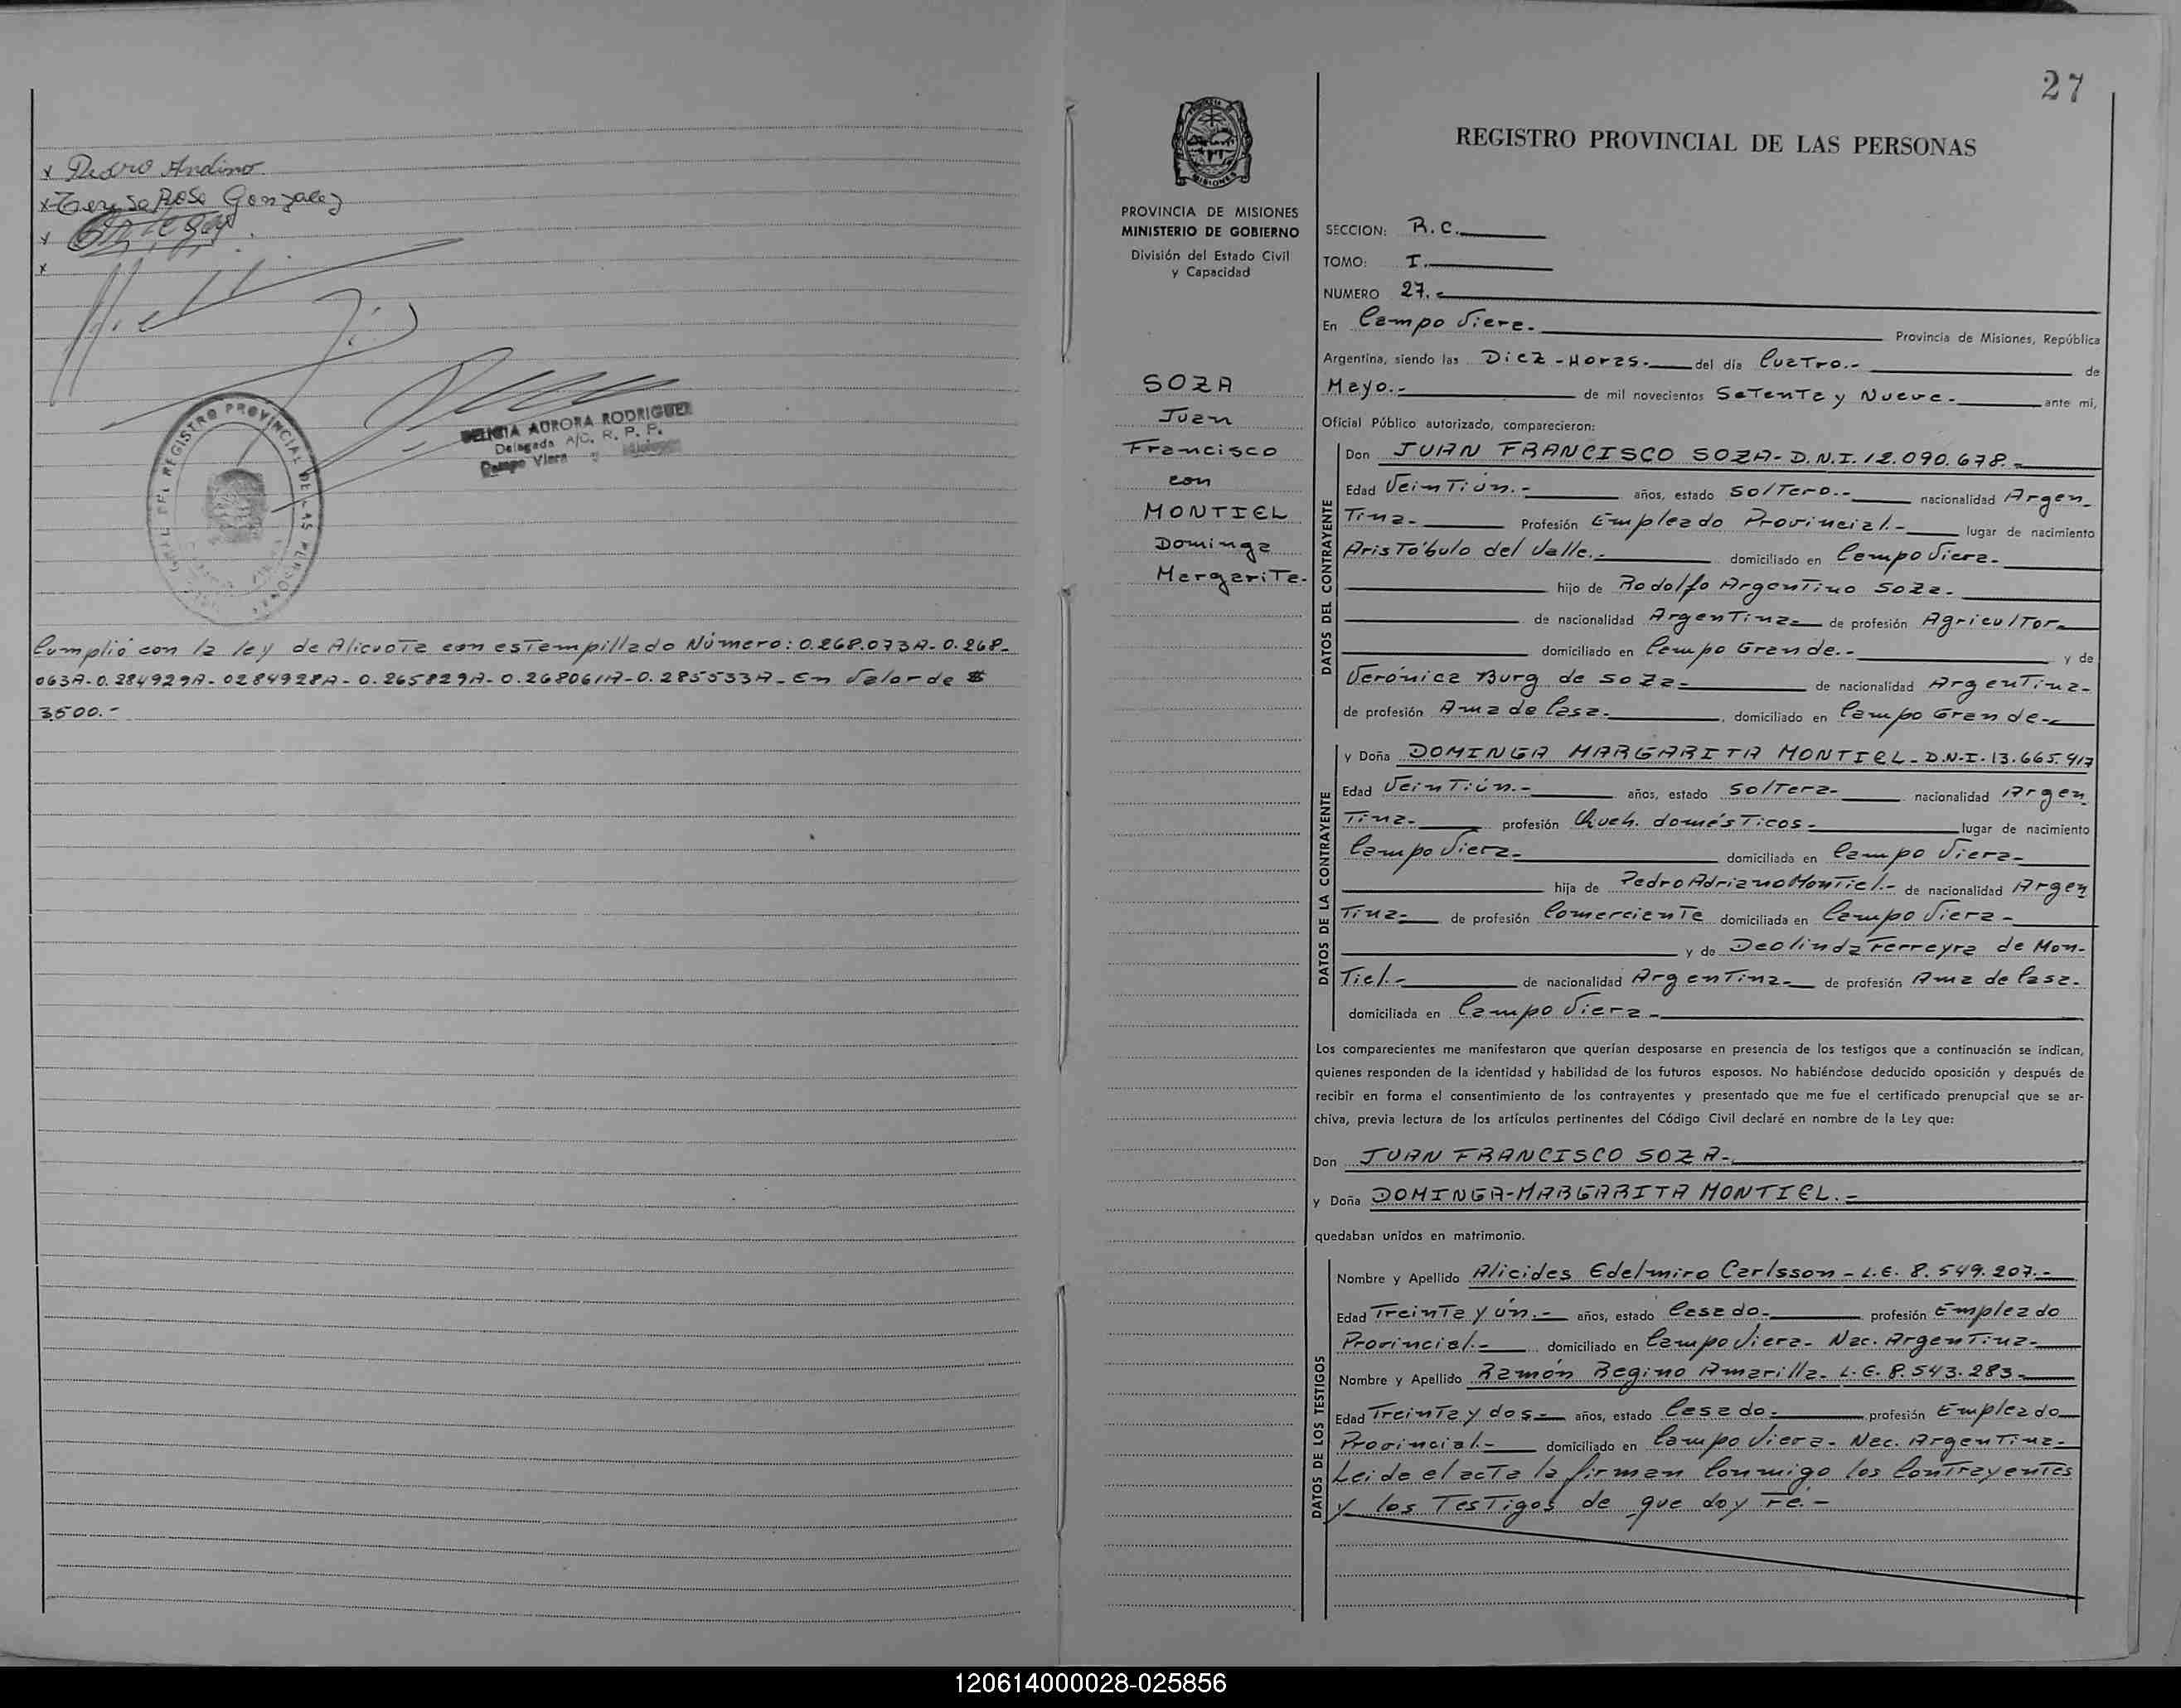 x Pedro Andino
x Teresa Rosa Gonzalez
x Ortega
x
REGISTRO PROVINCIAL DE LAS PERSONAS
DELICIA AURORA RODRIGUEZ
Delegada A/C. R. P. P.
Campo Viera
Cumplió con la ley de Alicuota con estampillado Número: 0.268.073A-0.268-
063A-0.284929A-0284928A-0.265829A-0.268061A-0.285533A-En Valor de $
3.500.-
27
PROVINCIA DE MISIONES
MINISTERIO DE GOBIERNO
División del Estado Civil
y Capacidad
SOZA
Juan
Francisco
con
MONTIEL
Dominga
Margarita.
REGISTRO PROVINCIAL DE LAS PERSONAS
SECCION: R.C.
TOMO: I.
NUMERO 27.-
En Campo Viera.- Provincia de Misiones, República
Argentina, siendo las Diez-Horas.- del día Cuatro.- de
Mayo.- de mil novecientos Setenta y Nueve.- ante mi,
Oficial Público autorizado, comparecieron:
DATOS DEL CONTRAYENTE
Don JUAN FRANCISCO SOZA-D.N.I.12.090.678.-
Edad Veintiún.- años, estado Soltero.- nacionalidad Argen-
tina- Profesión Empleado Provincial.- lugar de nacimiento
Aristóbulo del Valle.- domiciliado en Campo Viera-
hijo de Rodolfo Argentino Soza-
de nacionalidad Argentina- de profesión Agricultor-
domiciliado en Campo Grande.- y de
Verónica Burg de Soza- de nacionalidad Argentina-
de profesión Ama de Casa- , domiciliado en Campo Grande-
DATOS DE LA CONTRAYENTE
y Doña DOMINGA MARGARITA MONTIEL-D.N.I.13.665.917
Edad Veintiún.- años, estado Soltera- nacionalidad Argen
tina- profesión Queh. domésticos- lugar de nacimiento
Campo Viera- domiciliada en Campo Viera-
hija de Pedro Adriano Montiel.- de nacionalidad Argen
tina- de profesión Comerciante domiciliada en Campo Viera-
y de Deolinda Ferreyra de Mon-
tiel.- de nacionalidad Argentina- de profesión Ama de Casa-
domiciliada en Campo Viera-
Los comparecientes me manifestaron que querían desposarse en presencia de los testigos que a continuación se indican,
quienes responden de la identidad y habilidad de los futuros esposos. No habiéndose deducido oposición y después de
recibir en forma el consentimiento de los contrayentes y presentado que me fue el certificado prenupcial que se ar-
chiva, previa lectura de los artículos pertinentes del Código Civil declaré en nombre de la Ley que:
Don JUAN FRANCISCO SOZA-
y Doña DOMINGA-MARGARITA MONTIEL.-
quedaban unidos en matrimonio.
DATOS DE LOS TESTIGOS
Nombre y Apellido Alicides Edelmiro Carlsson-L.E. 8.549.207.-
Edad Treinta y ún.- años, estado Casado- profesión Empleado
Provincial.- domiciliado en Campo Viera- Nac. Argentina-
Nombre y Apellido Ramón Regino Amarilla- L.E. 8.543.283-
Edad Treinta y dos- años, estado Casado- profesión Empleado
Provincial.- domiciliado en Campo Viera- Nac. Argentina-
Leida el acta la firman Conmigo los Contrayentes
y los Testigos de que doy Fé.-
120614000028-025856